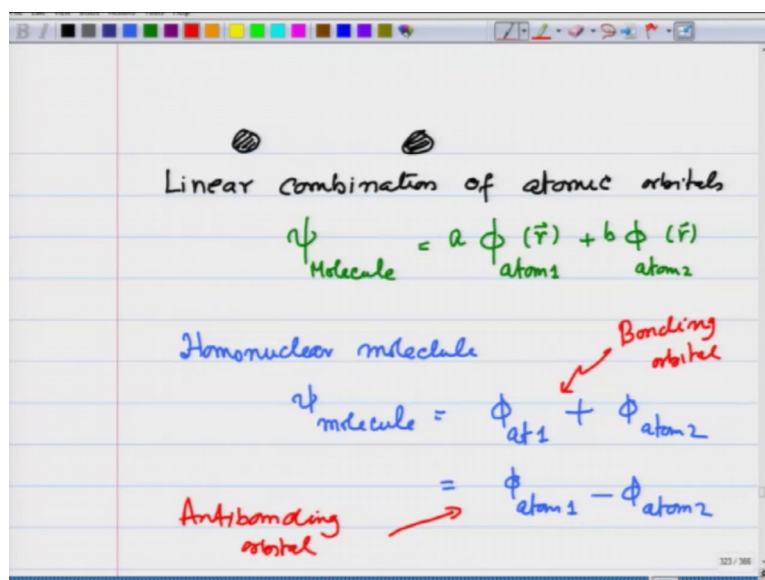 Linear combination of atomic orbitals
ψ_Molecule = a ϕ_atom1 (r⃗) + b ϕ_atom2 (r⃗)
Bonding
orbital
Homonuclear moleclule
ψ_molecule = ϕ_at1 + ϕ_atom2
= ϕ_atom1 − ϕ_atom2
Antibonding
orbital
323 / 366